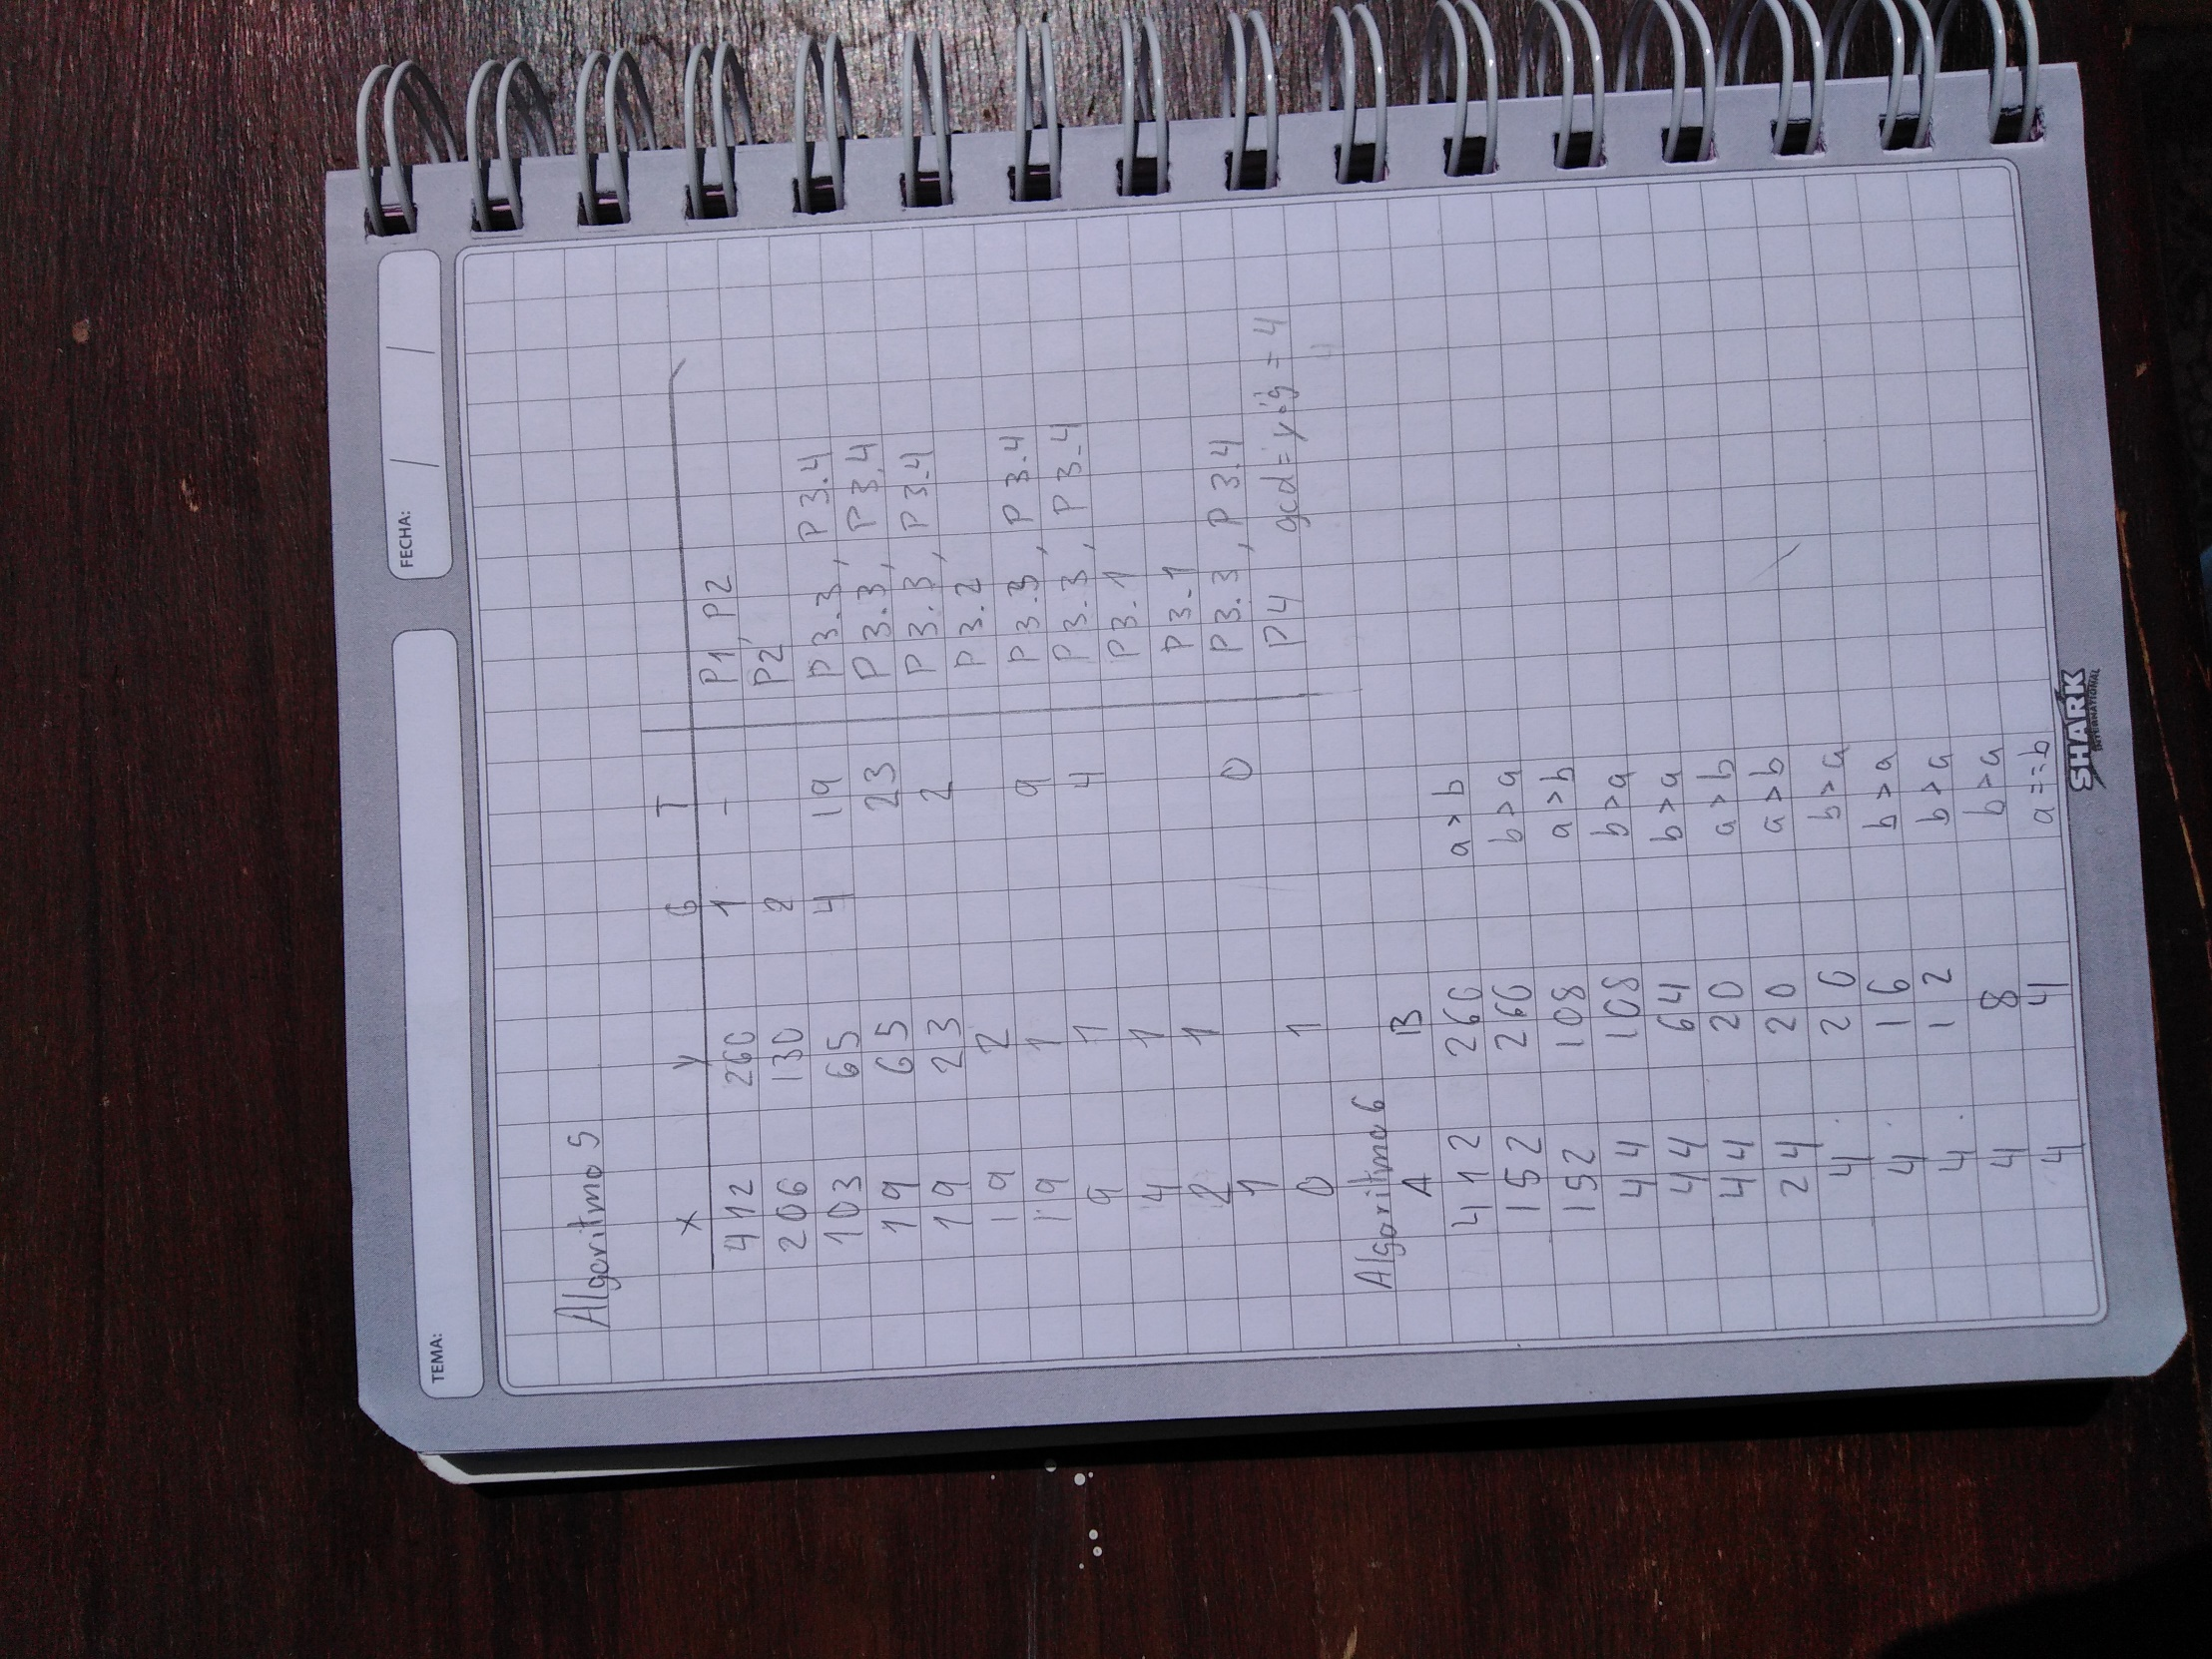 TEMA:
FECHA: / /
Algoritmo 5
X Y G T
412 260 1 - P1, P2
206 130 2 P2
103 65 4 19 P3.3, P3.4
19 65 23 P3.3, P3.4
19 23 2 P3.3, P3.4
19 2 P3.2
19 1 9 P3.3, P3.4
9 1 4 P3.3, P3.4
4 1 P3.1
2 1 P3.1
1 0 P3.3, P3.4
0 1 P4 gcd = y·g = 4
Algoritmo 6
A B
412 260 a > b
152 260 b > a
152 108 a > b
44 108 b > a
44 64 b > a
44 20 a > b
24 20 a > b
4 20 b > a
4 16 b > a
4 12 b > a
4 8 b > a
4 4 a == b
SHARK
INTERNATIONAL